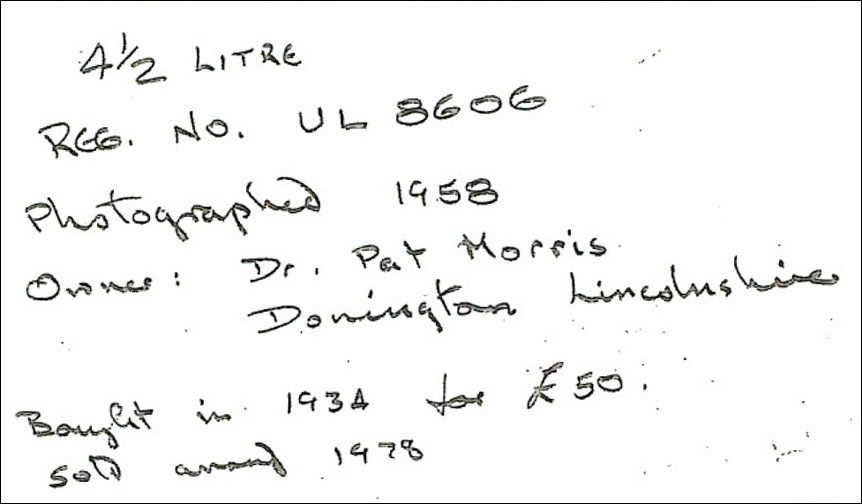 4½ LITRE
REG. NO. UL 8606
Photographed 1958
Owner: Dr. Pat Morris
Donington Lincolnshire
Bought in 1934 for £50.
sold around 1978